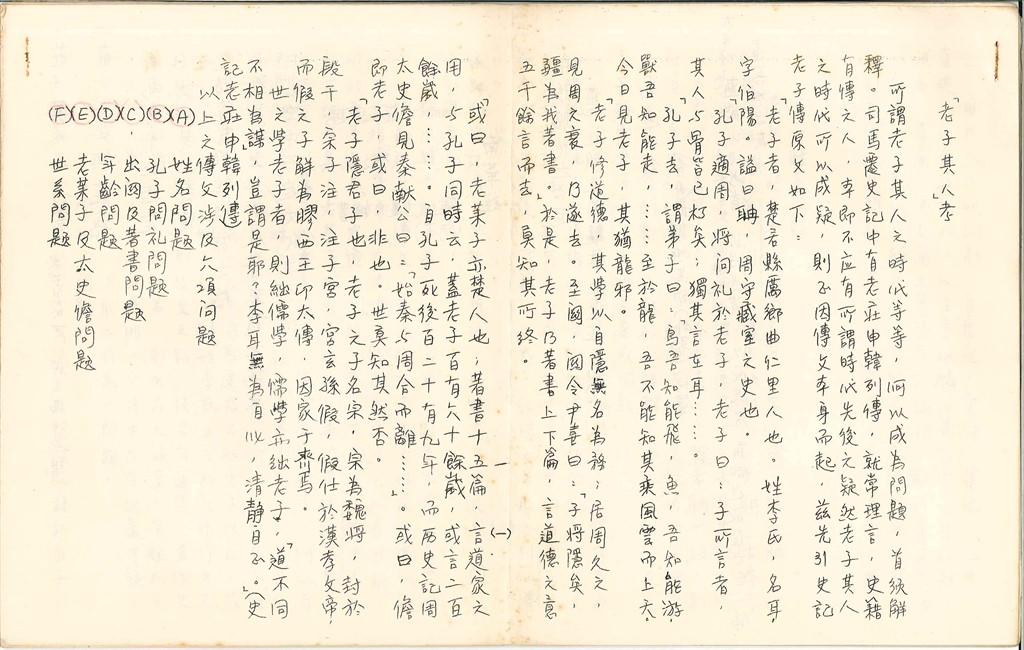 「老子其人」考
所謂老子其人之時代等等，何以成為問題，首須解
釋。司馬遷史記中有老莊申韓列傳，就常理言，史籍
有傳之人，本即不應有所謂時代先後之疑然老子其人
之時代所以成疑，則正因傳文本身而起，茲先引史記
老子傳原文如下：
「老子者，楚苦縣厲鄉曲仁里人也。姓李氏，名耳
字伯陽。謚曰聃，周守藏室之史也。
「孔子適周，將问礼於老子，老子曰：子所言者，
其人与骨皆已朽矣；獨其言在耳……。
「孔子去，謂弟子曰：「鳥吾知能飛，魚，吾知能游，
獸吾知能走，……至於龍，吾不能知其乘風雲而上天。
今日見老子，其猶龍邪。
「老子修道德，其學以自隱無名為務；居周久之，
見周之衰，乃遂去。至關，關令尹喜曰：「子將隱矣，
彊為我著書。」於是，老子乃著書上下篇，言道德之意
五千餘言而去，莫知其所終。
一
(一)
「或曰，老萊子亦楚人也；著書十五篇，言道家之
用，与孔子同時云，蓋老子百有六十餘歲，或言二百
餘歲，……。自孔子死後百二十有九年，而历史記周
太史儋見秦献公曰：「始秦与周合而離……」。或曰，儋
即老子，或曰非也。世莫知其然否。
「老子隱君子也，老子之子名宗，宗為魏將，封於
段干，宗子注，注子宮，宮玄孫假，假仕於漢孝文帝，
而假之子解為膠西王卬太傅，因家于齊焉。
「世之學老子者，則絀儒學，儒學亦絀老子，「道不同
不相為謀，豈謂是耶？李耳無為自化，清靜自正。」(史
記老莊申韓列傳
以上之傳文涉及六項问題
(A) 姓名問題
(B) 孔子問礼問題
(C) 出關及著書問題
(D) 年齡問題
(E) 老萊子及太史儋問題
(F) 世系問題